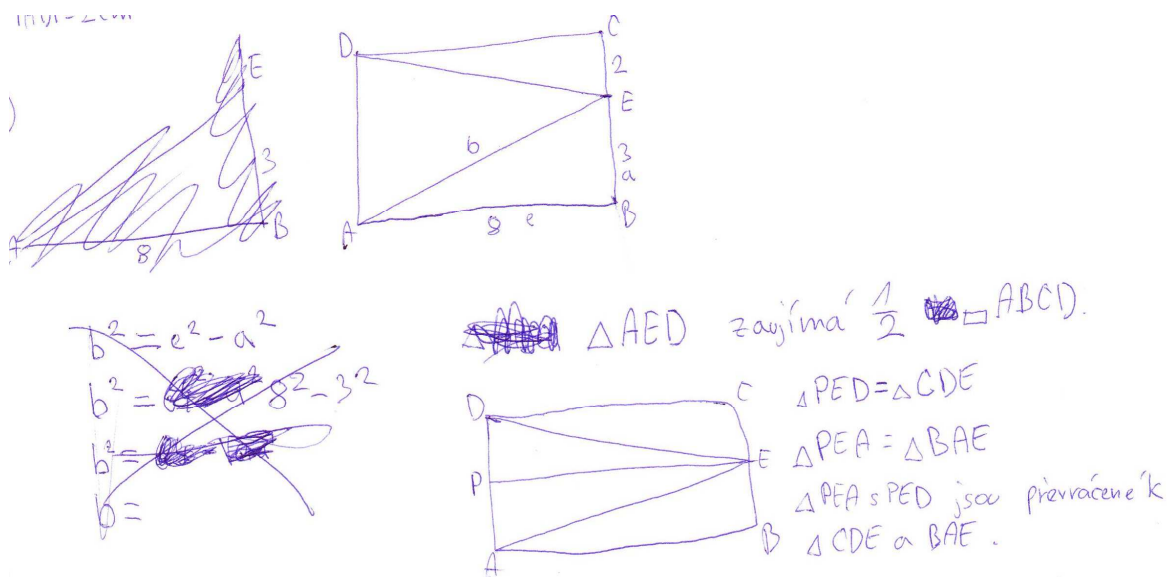 D
C
2
E
E
b
3
3
a
A
8
B
A
8
e
B
b² = e² - a²
b² = 8² - 3²
b² =
b =
△AED zaujímá 1/2 □ABCD.
D
C
P
E
A
B
△PED = △CDE
△PEA = △BAE
△PEA s PED jsou převrácené k
△ CDE a BAE.